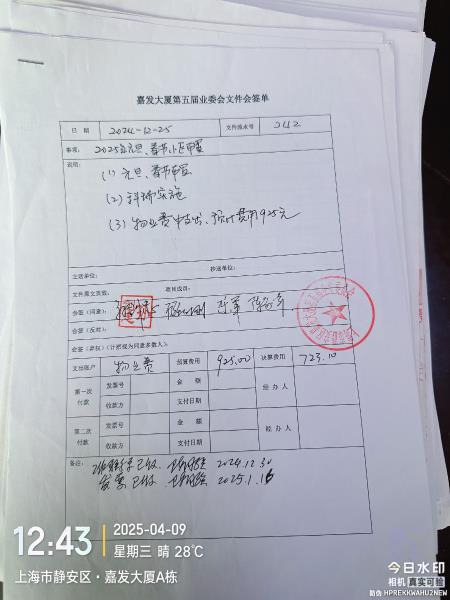 嘉发大厦第五届业委会文件会签单
日 期 2024-12-25 文件流水号 242
事项: 2025年元旦、春节小区布置
说明:
(1) 元旦、春节布置
(2) 环境实施
(3) 物业费中支出、预计费用925元
主送单位: 抄送单位:
文件原文页数: 项目成员:
会签(同意):
会签(反对):
会签(弃权)(计票视为同意多数人):
支出账户 物业费 预算费用 925.00 决算费用 723.10
第一次付款 发票号 金 额 经 办 人
收款方 支付日期
第二次付款 发票号 金 额 经 办 人
收款方 支付日期
备注:
已收 2024.12.30
发票已收 2025.1.16
12:43 2025-04-09
星期三 晴 28℃
上海市静安区·嘉发大厦A栋
今日水印
相机 真实可验
防伪 HPREKKWAHU2NEW